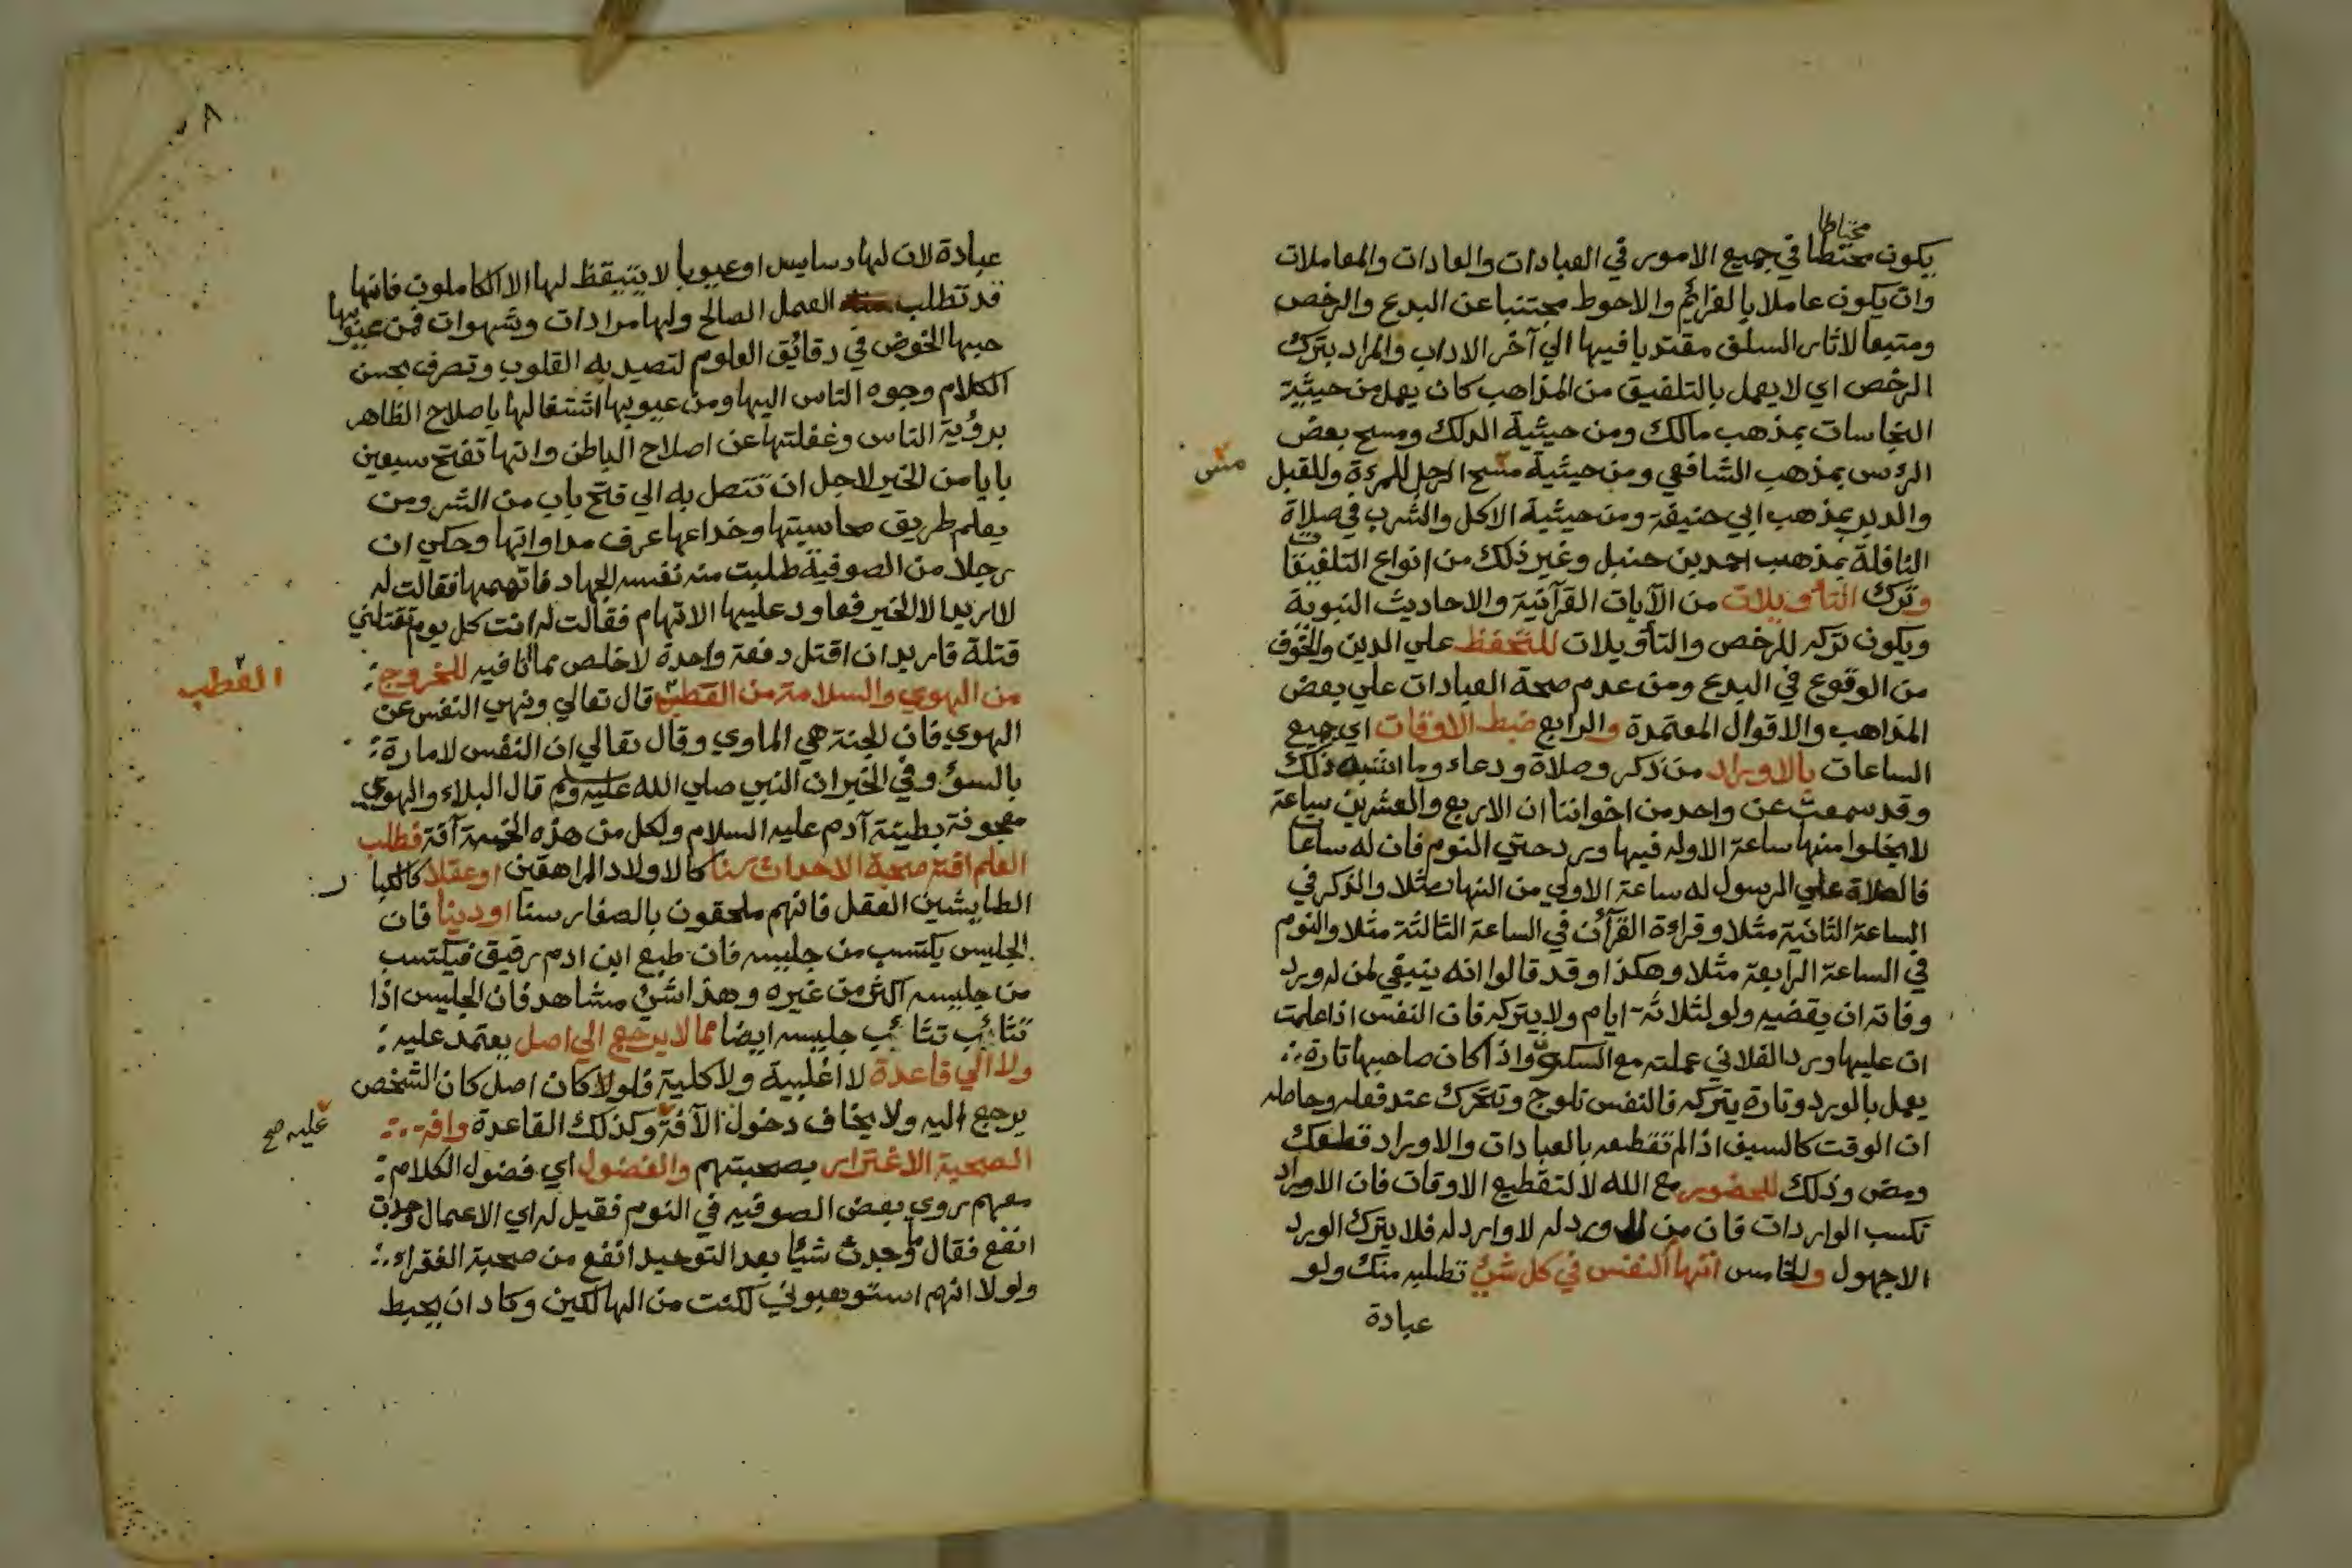 محتاطا
يكون محتطا في جميع الامور في العبادات والعادات والمعاملات
وان يكون عاملا بالعزائم والاحوط مجتنبا عن البدع والرخص
ومتبعا لاثار السلف مقتديا فيها الي آخر الاداب والمراد بترك
الرخص اي لا يعمل بالتلفيق من المذاهب كان يعمل من حيثية
النجاسات بمذهب مالك ومن حيثية الدلك ومسح بعض
الرؤس بمذهب الشافعي ومن حيثية مسح الرجل للمرءة وللقبل
مس
والدبر بمذهب ابي حنيفة ومن حيثية الاكل والشرب في صلاة
النافلة بمذهب احمد بن حنبل وغير ذلك من انواع التلفيقات
وترك التأويلات من الآيات القرآنية والاحاديث النبوية
ويكون تركه للرخص والتأويلات للتحفظ علي الدين والخوف
من الوقوع في البدع ومن عدم صحة العبادات علي بعض
المذاهب والاقوال المعتمدة والرابع ضبط الاوقات اي جميع
الساعات بالاوراد من ذكر وصلاة ودعاء وما اشبه ذلك
وقد سمعت عن واحد من اخواننا ان الاربع والعشرين ساعة
لا يخلوا منها ساعة الاوله فيها ورد حتي النوم فان له ساعا
فالصلاة علي الرسول له ساعة الاولي من النهار مثلا والذكر في
الساعة الثانية مثلا وقراءة القرآن في الساعة الثالثة مثلا والنوم
في الساعة الرابعة مثلا وهكذا وقد قالوا انه ينبغي لمن له ورد
وفاته ان يقضيه ولو لثلاثة ايام ولا يتركه فان النفس اذا علمت
ان عليها ورد الفلاني عملته مع السكون واذا كان صاحبها تارة
يعمل بالورد وتارة يتركه فالنفس تلوج وتتحرك عند فعله وحاصله
ان الوقت كالسيف اذا لم تقطعه بالعبادات والاوراد قطعك
ومض وذلك للحضور مع الله لا لتقطيع الاوقات فان الاوراد
تكسب الواردات فان من لا ورد له لا وارد له فلا يترك الورد
الا جهول والخامس اتهام النفس في كل شئ تطلبه منك ولو
عبادة
عبادة لان لها دسايس او عيوبا لا يتيقظ لها الا الكاملون فانها
قد تطلب العمل الصالح ولها مرادات وشهوات فمن عيوبها
حبها الخوض في دقائق العلوم لتصيد به القلوب وتصرف بحسن
الكلام وجوه الناس اليها ومن عيوبها اشتغالها باصلاح الظاهر
برؤية الناس وغفلتها عن اصلاح الباطن وانها تفتح سبعين
بابا من الخير لاجل ان تتصل به الي فتح باب من الشر ومن
يعلم طريق محاسبتها وخداعها عرف مداواتها وحكي ان
رجلا من الصوفية طلبت منه نفسه الجهاد فاتهمها فقالت له
لا اريد الا الخير فعاود عليها الاتهام فقالت له انت كل يوم تقتلني
قتلة فاريد ان اقتل دفعة واحدة لاخلص مما انا فيه للخروج
من الهوي والسلامة من القطب قال تعالي ونهي النفس عن
القطب
الهوي فان الجنة هي الماوي وقال تعالي ان النفس لامارة
بالسوء وفي الخبر ان النبي صلي الله عليه وسلم قال البلاء والهوي
معجونة بطينة آدم عليه السلام ولكل من هذه الخمسة آفة فطلب
العلم افته صحبة الاحداث سنا كالاولاد المراهقين او عقلا كالكبا
ر
الطايشين العقل فانهم ملحقون بالصغار سنا او دينا فان
الجليس يكتسب من جليسه فان طبع ابن ادم رقيق فيكتسب
من جليسه اكثر من غيره وهذا شئ مشاهد فان الجليس اذا
تثائب تثائب جليسه ايضا مما لا يرجع الي اصل يعتمد عليه
ولا الي قاعدة لا اغلبية ولا كلية فلو كان اصل كان الشخص
يرجع اليه ولا يخاف دخول الآفة وكذلك القاعدة وافة
عليه صح
الصحبة الاغترار بصحبتهم والفضول اي فضول الكلام
معهم روي بعض الصوفيه في النوم فقيل له اي الاعمال وجدت
انفع فقال ما وجدت شيأ بعد التوحيد انفع من صحبة الفقراء
ولولا انهم استوهبوني لكنت من الهالكين وكاد ان يحبط